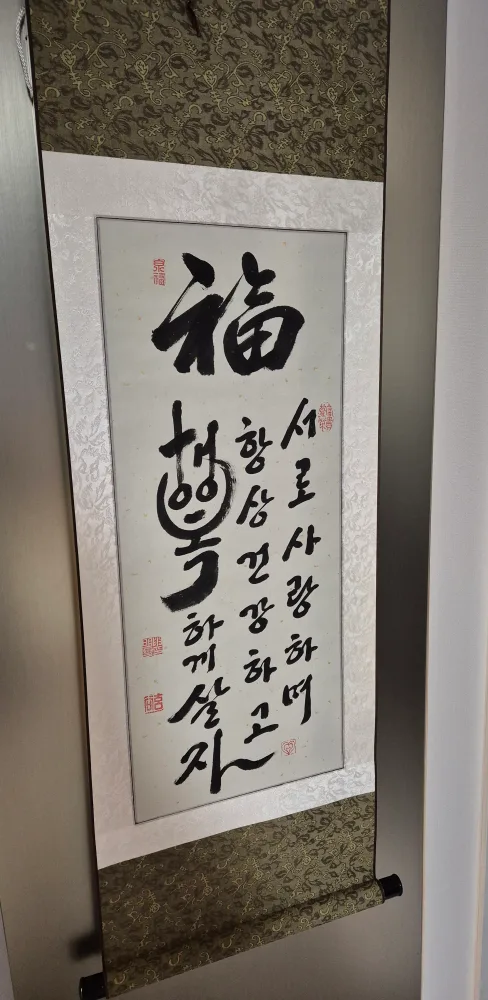 福
서로사랑하며
항상건강하고
행복하게살자